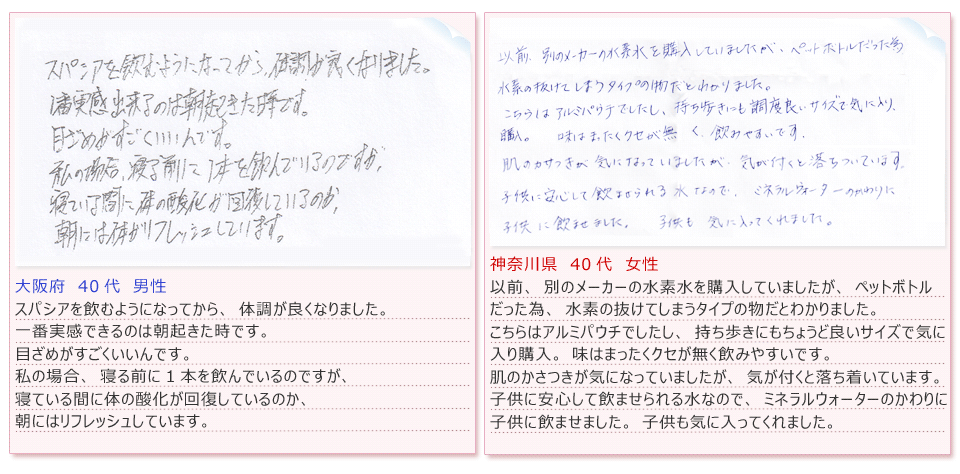 スパシアを飲むようになってから、体調が良くなりました。
1番実感出来るのは朝起きた時です。
目ざめがすごくいいんです。
私の場合、寝る前に1本を飲んでいるのですが、
寝ている間に体の酸化が回復しているのか、
朝には体がリフレッシュしています。
大阪府 40代 男性
スパシアを飲むようになってから、体調が良くなりました。
一番実感できるのは朝起きた時です。
目ざめがすごくいいんです。
私の場合、寝る前に1本を飲んでいるのですが、
寝ている間に体の酸化が回復しているのか、
朝にはリフレッシュしています。
以前、別のメーカーの水素水を購入していましたが、ペットボトルだった為
水素の抜けてしまうタイプの物だとわかりました。
こちらはアルミパウチでしたし、持ち歩きにも調度良いサイズで気に入り、
購入。 味はまったくクセが無く、飲みやすいです。
肌のカサつきが気になっていましたが、気が付くと落ちついています。
子供に安心して飲ませられる水なので、ミネラルウォーターのかわりに
子供に飲ませました。 子供も気に入ってくれました。
神奈川県 40代 女性
以前、別のメーカーの水素水を購入していましたが、ペットボトル
だった為、水素の抜けてしまうタイプの物だとわかりました。
こちらはアルミパウチでしたし、持ち歩きにもちょうど良いサイズで気に
入り購入。味はまったくクセが無く飲みやすいです。
肌のかさつきが気になっていましたが、気が付くと落ち着いています。
子供に安心して飲ませられる水なので、ミネラルウォーターのかわりに
子供に飲ませました。子供も気に入ってくれました。